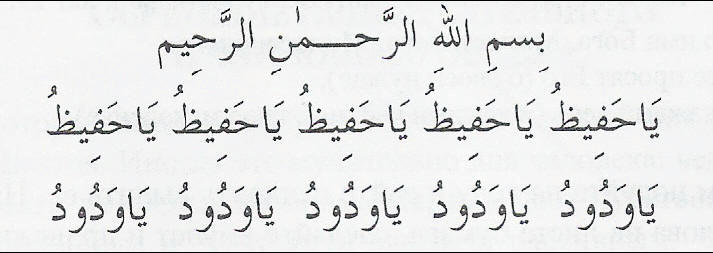 بِسمِ اللهِ الرَّحـمـٰنِ الرَّحِيمِ
يَاحَفِيظُ يَاحَفِيظُ يَاحَفِيظُ يَاحَفِيظُ يَاحَفِيظُ
يَاوَدُودُ يَاوَدُودُ يَاوَدُودُ يَاوَدُودُ يَاوَدُودُ